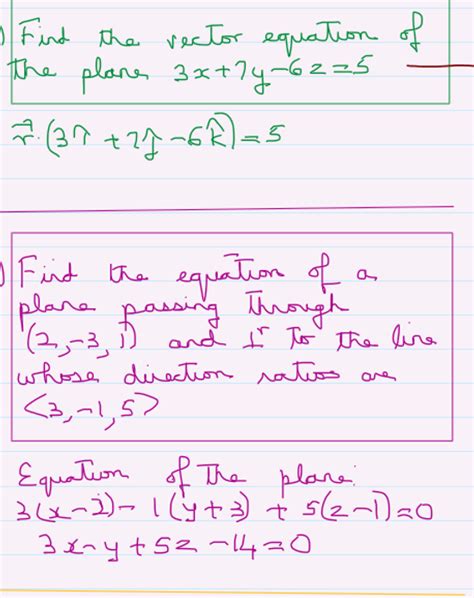 ) Find the vector equation of
the plane 3x+7y-6z=5
r⃗.(3î+7ĵ-6k̂)=5
) Find the equation of a
plane passing through
(2,-3,1) and ⊥r to the line
whose direction ratios are
<3,-1,5>
Equation of the plane:
3(x-2)-1(y+3)+5(z-1)=0
3x-y+5z-14=0